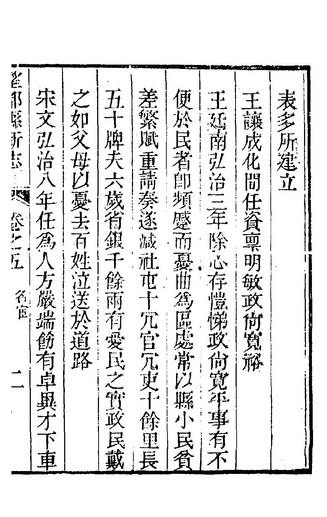 表多所建立
王讓成化間任資稟明敏政尙寬裕
王延南弘治三年除心存愷悌政尙寬平事有不
便於民者卽頻蹙而憂曲爲區處常以縣小民貧
差繁賦重請奏遂減社屯十冗官冗吏十餘里長
五十牌夫六歲省銀千餘兩有愛民之實政民戴
之如父母以憂去百姓泣送於道路
宋文弘治八年任爲人方嚴端飭有卓異才下車
望都縣新志 卷之五 名宦 二